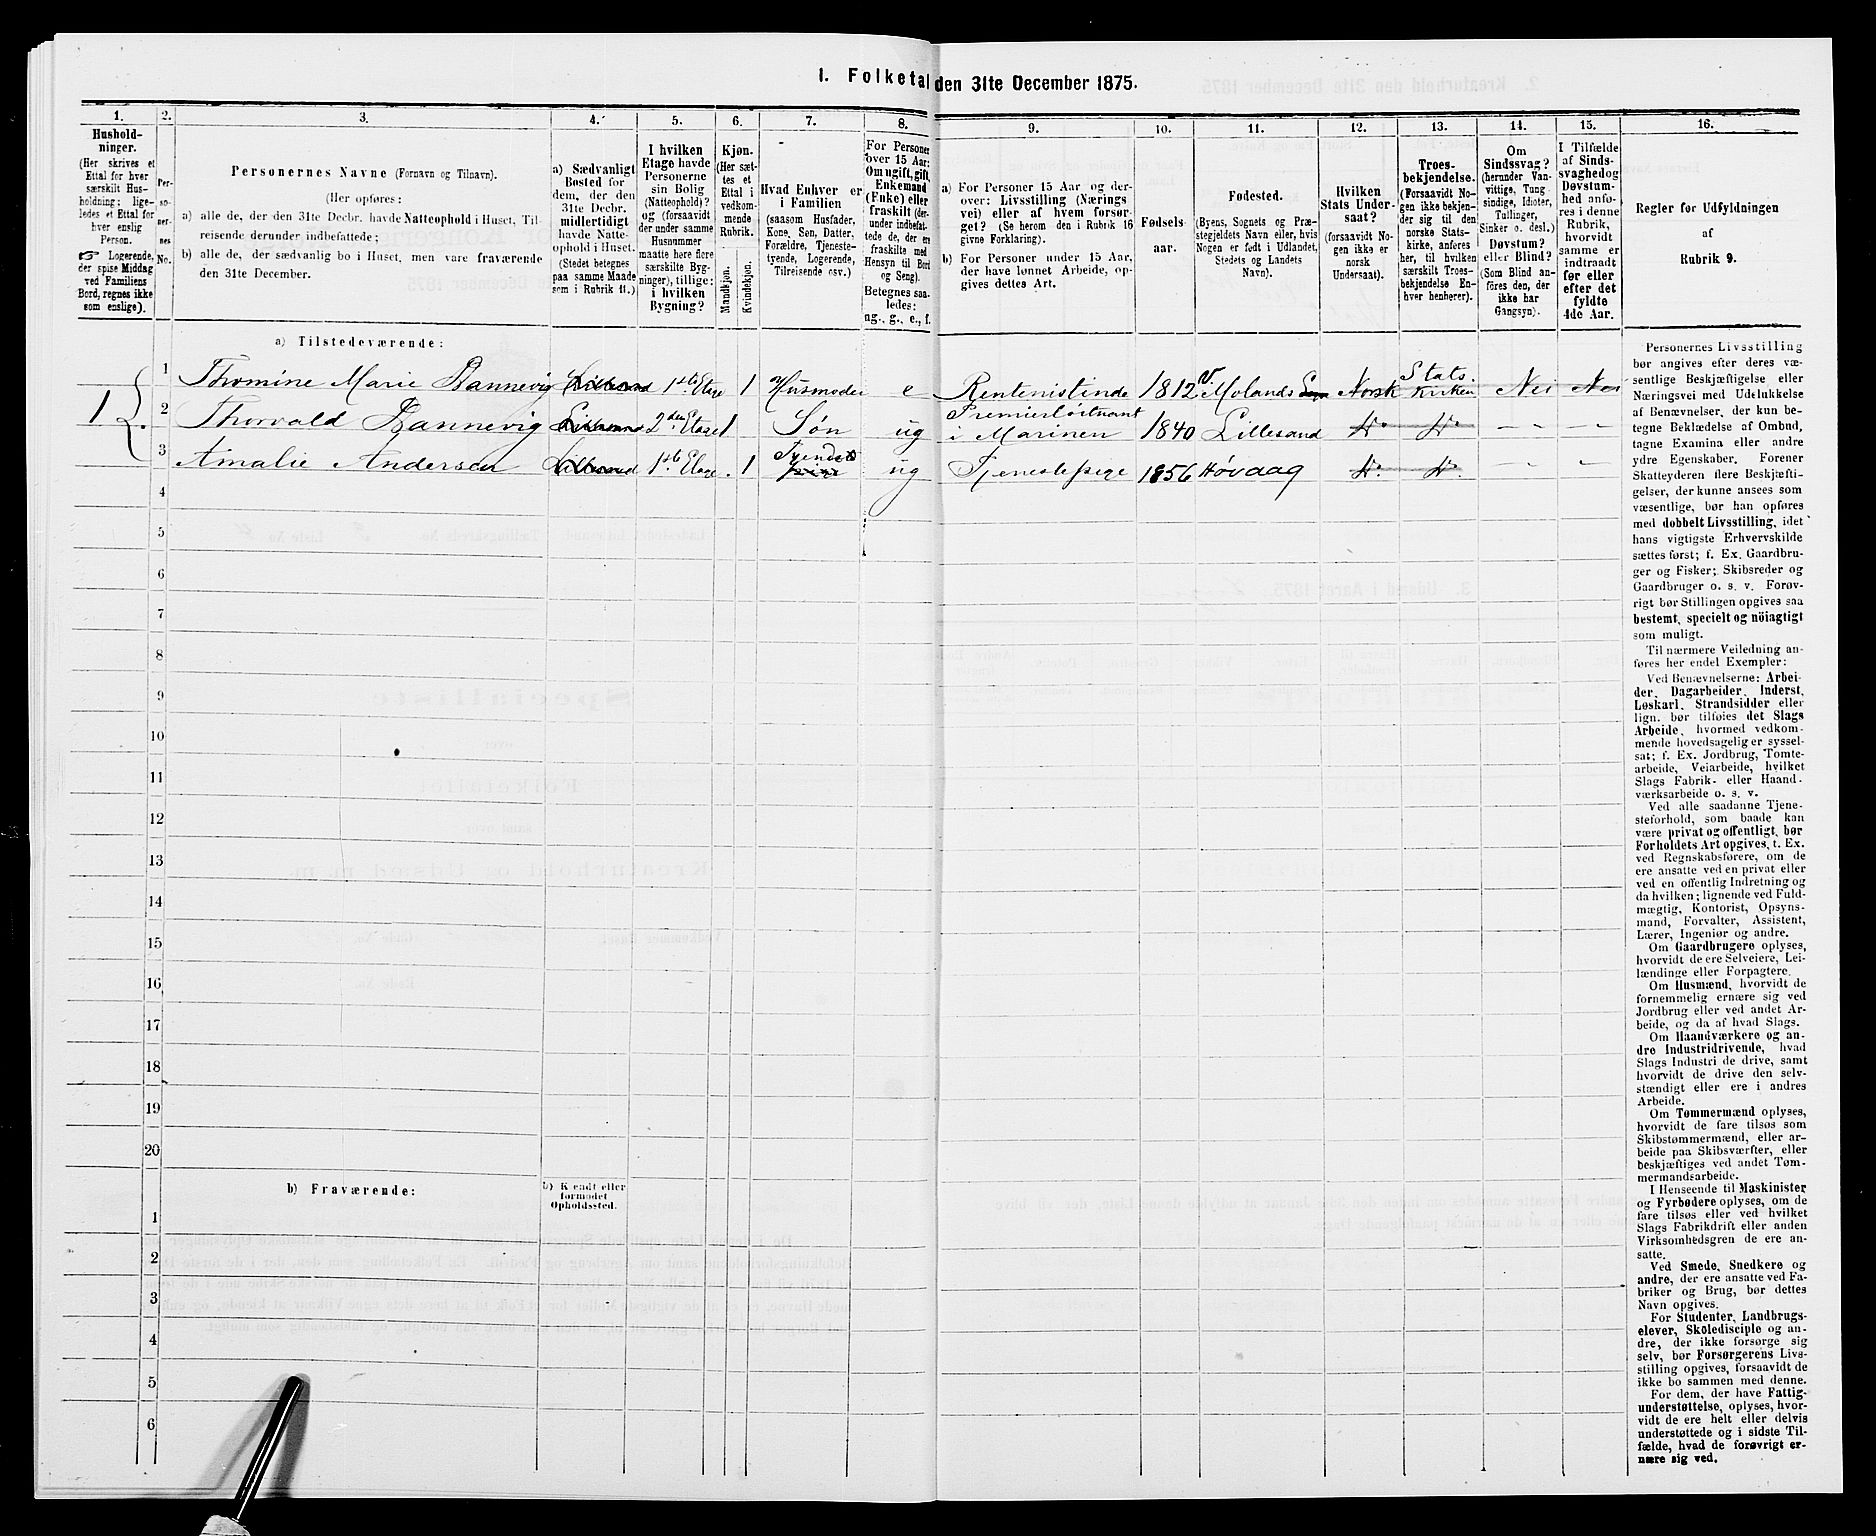 1. Folketal den 31te December 1875.
1. 2. 3. 4. 5. 6. 7. 8. 9. 10. 11. 12. 13. 14. 15. 16.
Hushold-
ninger.
(Her skrives et
Ettal for hver
særskilt Hus-
holdning; lige-
ledes et Ettal for
hver enslig
Person.
☞ Logerende,
der spise Middag
ved Familiens
Bord, regnes ikke
som enslige).
Per-
so-
ner-
nes
No.
Personernes Navne (Fornavn og Tilnavn).
(Her opføres:
a) alle de, der den 31te Decbr. havde Natteophold i Huset, Til-
reisende derunder indbefattede;
b) alle de, der sædvanlig bo i Huset, men vare fraværende
den 31te December.
a) Sædvanligt
Bosted for
dem, der den
31te Decbr.
midlertidigt
havde Natte-
ophold i Huset.
(Stedet betegnes
paa samme Maade
som i Rubrik 11.)
I hvilken
Etage havde
Personerne
sin Bolig
(Natteophold)?
og (forsaavidt
der under samme
Husnummer
maatte høre flere
særskilte Byg-
ninger), tillige:
i hvilken
Bygning?
Kjøn.
(Her sæt-
tes et
Ettal i
vedkom-
mende
Rubrik.
Mandkjøn.
Kvindekjøn.
Hvad Enhver er
i Familien
(saasom Husfader,
Kone, Søn, Datter,
Forældre, Tjeneste-
tyende, Logerende,
Tilreisende osv.)
For Personer
over 15 Aar:
Om ugift, gift,
Enkemand
(Enke) eller
fraskilt (der-
under indbefat-
tede de, der ere
fraskilte med
Hensyn til Bord
og Seng).
Betegnes saa-
ledes:
ug., g., e., f.
a) For Personer 15 Aar og der-
over: Livsstilling (Nærings
vei) eller af hvem forsør-
get? (Se herom den i Rubrik 16
givne Forklaring).
b) For Personer under 15 Aar,
der have lønnet Arbeide, op-
gives dettes Art.
Fødsels-
aar.
Fødested.
(Byens, Sognets og Præ-
stegjeldets Navn, eller, hvis
Nogen er født i Udlandet,
Stedets og Landets
Navn).
Hvilken
Stats Under-
saat?
(forsaavidt No-
gen ikke er
norsk
Undersaat).
Troes-
bekjendelse.
(Forsaavidt No-
gen ikke bekjen-
der sig til den
norske Stats-
kirke, anføres
her, til hvilken
særskilt Troes-
bekjendelse En-
hver henhører).
Om
Sindssvag?
(herunder Van-
vittige, Tung
sindige, Idioter,
Tullinger,
Sinker o. desl.)
Døvstum?
eller Blind?
(Som Blind an-
føres den, der
ikke har
Gangsyn).
I Tilfælde
af Sinds-
svaghed og
Døvstum-
hed anfø-
res i denne
Rubrik,
hvorvidt
samme er
indtraadt
før eller
efter det
fyldte
4de Aar.
Regler for Udfyldningen
af
Rubrik 9.
a) Tilstedeværende:
1 1 Thomine Marie Bannevig Lillesand 1ste Etage 1 Husmoder e Rentenistinde 1812 V. Molands Norsk Stats. Kirken Nei Nei
2 Thorvald Bannevig Lillesand 2den Etage 1 Søn ug Premierløitnant i Marinen 1840 Lillesand Do Do – –
3 Amalie Andersen Lillesand 1ste Etage 1 Tyende ug Tjenestepige 1856 Høvaag Do. Do. – –
4
5
6
7
8
9
10
11
12
13
14
15
16
17
18
19
20
b) Fraværende:
b) Kjendt eller
formodet
Opholdssted.
1
2
3
4
5
6
Personernes Livsstilling
bør angives efter deres væ-
sentlige Beskjæftigelse eller
Næringsvei med Udelukkelse
af Benævnelser, der kun be-
tegne Beklædelse af Ombud,
tagne Examina eller andre
ydre Egenskaber. Forener
Skatteyderen flere Beskjæfti-
gelser, der kunne ansees som
væsentlige, bør han opføres
med dobbelt Livsstilling, idet
hans vigtigste Erhvervskilde
sættes først; f. Ex. Gaardbru-
ger og Fisker; Skibsreder og
Gaardbruger o. s. v. Forøv-
rigt bør Stillingen opgives saa
bestemt, specielt og nøiagtigt
som muligt.
Til nærmere Veiledning an-
føres her endel Exempler:
Ved Benævnelserne: Arbei-
der, Dagarbeider, Inderst,
Løskarl, Strandsidder eller
lign. bør tilføies det Slags
Arbeide, hvormed vedkom-
mende hovedsagelig er syssel-
sat; f. Ex. Jordbrug, Tomte-
arbeide, Veiarbeide, hvilket
Slags Fabrik- eller Haand-
værksarbeide o. s. v.
Ved alle saadanne Tjene-
steforhold, som baade kan
være privat og offentligt, bør
Forholdets Art opgives, t. Ex.
ved Regnskabsførere, om de
ere ansatte ved en privat eller
ved en offentlig Indretning og
da hvilken; lignende ved Fuld-
mægtig, Kontorist, Opsyns-
mand, Forvalter, Assistent,
Lærer, Ingeniør og andre.
Om Gaardbrugere oplyses,
hvorvidt de ere Selveiere, Lei-
lændinge eller Forpagtere.
Om Husmænd, hvorvidt de
fornemmelig ernære sig ved
Jordbrug eller ved andet Ar-
beide, og da af hvad Slags.
Om Haandværkere og an-
dre Industridrivende, hvad
Slags Industri de drive, samt
hvorvidt de drive den selv-
stændigt eller ere i andres
Arbeide.
Om Tømmermænd oplyses,
hvorvidt de fare tilsøs som
Skibstømmermænd, eller ar-
beide paa Skibsværfter, eller
beskjæftiges ved andet Tøm-
mermandsarbeide.
I Henseende til Maskinister
og Fyrbødere oplyses, om de
fare tilsøs eller ved hvilket
Slags Fabrikdrift eller anden
Virksomhedsgren de ere an-
satte.
Ved Smede, Snedkere og
andre, der ere ansatte ved Fa-
briker og Brug, bør dettes
Navn opgives.
For Studenter, Landbrugs-
elever, Skoledisciple og an-
dre, der ikke forsørge sig
selv, bør Forsørgerens Livs-
stilling opgives, forsaavidt de
ikke bo sammen med denne.
For dem, der have Fattig-
understøttelse, oplyses, hvor-
vidt de ere helt eller delvis
understøttede og i sidste Til-
fælde, hvad de forøvrigt er-
nære sig ved.